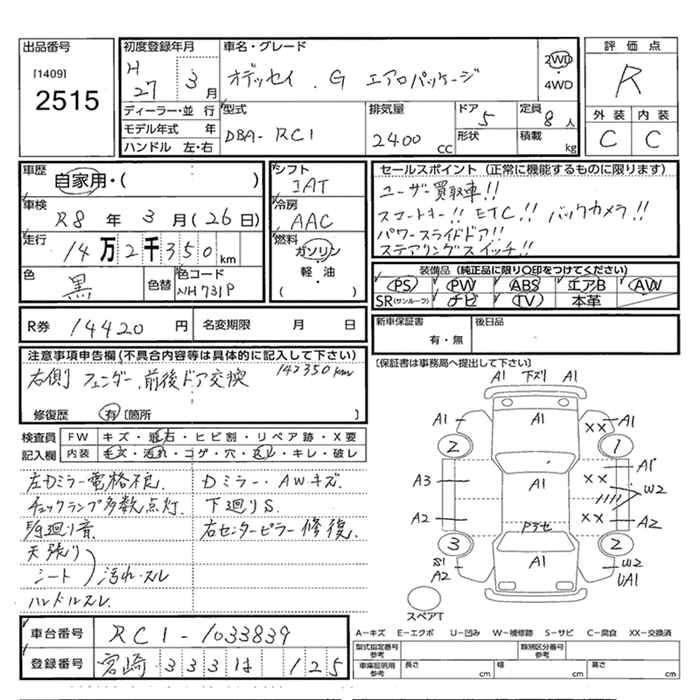 出品番号
[1409]
2515
初度登録年月
H
27 3 月
車名・グレード
オデッセイ . G エアロパッケージ
2WD
・
4WD
評価点
R
外装 内装
C C
ディーラー・並 行
モデル年式 年
ハンドル 左・右
型式
DBA- RC1
排気量
2400 CC
ドア 5
形状
定員 8 人
積載 kg
車歴
自家用・(
車検
R8 年 3 月 (26 日)
走行
14 万 2 千 350 km
色 黒
色替
色コード
NH731P
シフト
IAT
冷房
AAC
燃料
ガソリン
軽・油
( )
セールスポイント (正常に機能するものに限ります)
ユーザー買取車!!
スマートキー!! ETC!! バックカメラ!!
パワースライドドア!!
ステアリングスイッチ!!
装備品 (純正品に限り〇印をつけてください)
PS PW ABS エアB AW
SR(サンルーフ) ナビ TV 本革
R券 14420 円
名変期限 月 日
新車保証書
有・無
後日品
[保証書は事務局へ提出して下さい]
注意事項申告欄 (不具合内容等は具体的に記入して下さい)
右側 フェンダー、前後ドア交換 142350km
修復歴 有 [箇所 ]
検査員
記入欄
FW キズ・飛石・ヒビ割・リペア跡・X要
内装 キズ・汚れ・コゲ・穴・スレ・キレ・破レ
左Dミラー電格不良. Dミラー・AWキズ.
チェックランプ多数点灯. 下廻りS.
F/g廻り音. 右センターピラー修復.
天張り
シート 汚れ・スレ
ハンドルスレ.
A1 下ズリ A1
A1 A1 XX A1
2 1
A1
A3 XX A1
W2
A2 XX A2
アラセ
3 2
S1 A1 W2
A2 UA1
スペアT
車台番号 RC1-1033839
登録番号 宮崎 333 は 125
A−キズ E−エクボ U−凹み W−補修跡 S−サビ C−腐食 XX−交換済
型式指定番号
参考
類別区分番号
参考
車庫証明用
参考
長さ cm 幅 cm 高さ cm